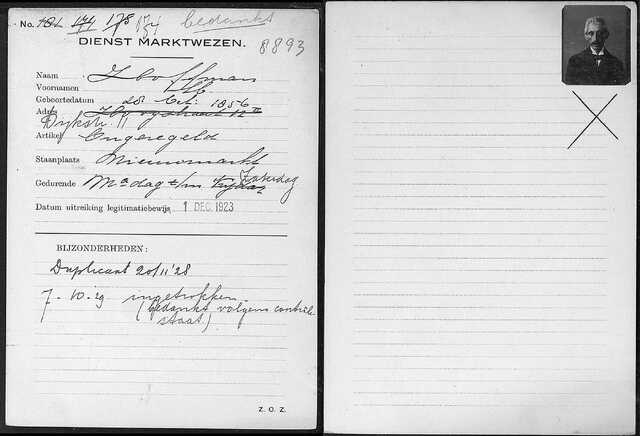 No. 181 171 178 174 bedankt
DIENST MARKTWEZEN.
8893
Naam Hoffman
Voornamen
Geboortedatum 28 Oct: 1856
Adres Hoogstraat 12 II
Dijkstr 11
Artikel Ongeregeld
Staanplaats Nieuwmarkt
Gedurende Mādag t/m Vrijdag Zaterdag
Datum uitreiking legitimatiebewijs 1 DEC. 1923
BIJZONDERHEDEN:
Duplicaat 20/11 '28
7-10-29 ingetrokken
(bedankt volgens contrôle
staat)
Z. O. Z.